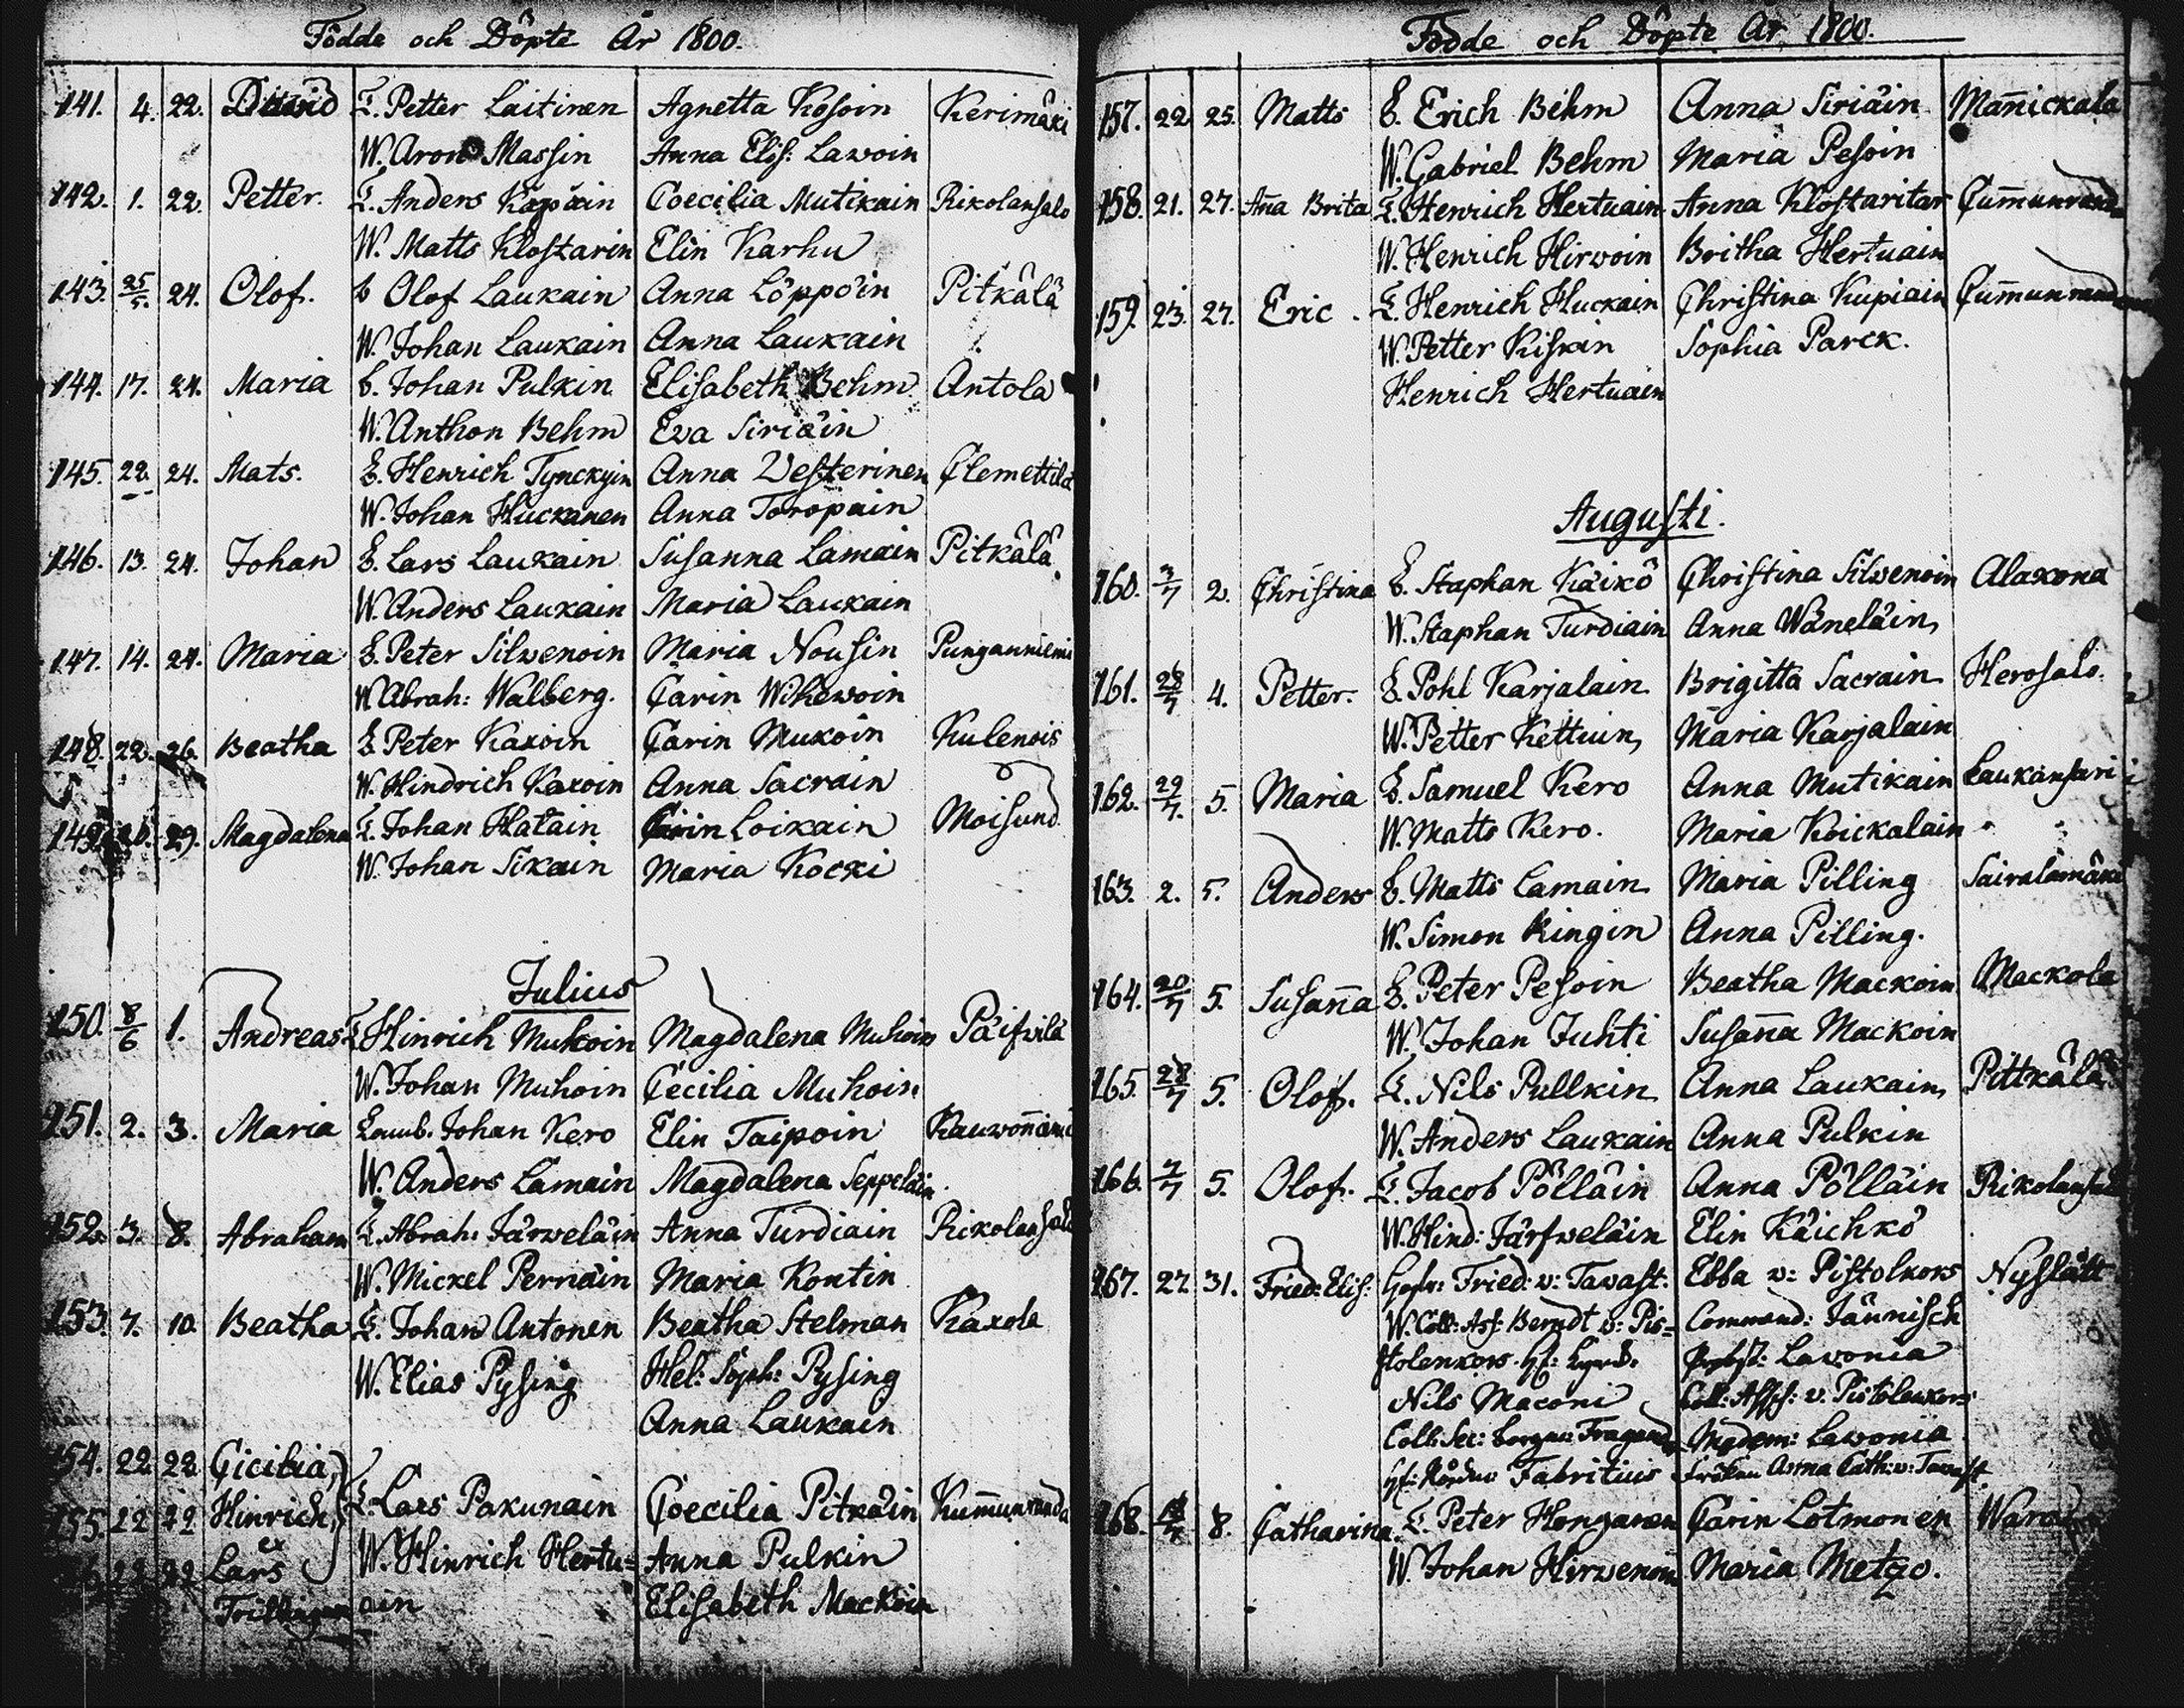 Födde och Döpte År 1800.
141. 4. 22. David L. Petter Laitinen Agnetta Kosoin Kerimäki
W. Aron Massin Anna Elis: Lawoin
142. 1. 22. Petter. L. Anders Kapiain Coecilia Mutikain Rikolansalo
W. Matts Klostarin Elin Karhu
143. 25/5. 24. Olof. b Olof Laukain Anna Löppöin Pitkälä
W. Johan Laukain Anna Laukain
144. 17. 24. Maria b. Johan Pulkin Elisabeth Behm Antola
W. Anthon Behm Eva Siriäin
145. 22. 24. Mats. L. Henrich Tynckyin Anna Vesterinen Clemettilä
W. Johan Huckanen Anna Toropain
146. 13. 24. Johan L. Lars Laukain Susanna Lamain Pitkälä
W. Anders Laukain Maria Laukain
147. 14. 24. Maria L. Peter Silwenoin Maria Nousin Punganniemi
W Abrah: Walberg. Carin Wihewoin
148. 22. 26. Beatha L Peter Kaxoin Carin Mukoin Kulenois
W. Hindrich Kaxoin Anna Sacrain
149. 29. Magdalena L. Johan Hatain Carin Loikain Moisund
W. Johan Sikain Maria Kocki
Julius
150. 8/6 1. Andreas L Hinrich Muhoin Magdalena Muhoin Päifvilä
W. Johan Muhoin Cecilia Muhoin
151. 2. 3. Maria Johan Kero Elin Taipoin
W. Anders Lamain Magdalena Seppeläin
152. 3. 8. Abraham L. Abrah: Järweläin Anna Turdiain Rikolansalo
W. Mickel Pernäin Maria Kontin
153. 7. 10. Beatha L. Johan Antonen Beatha Stelman Kaxola
W. Elias Pysing Hel: Soph: Pysing
Anna Laukain
154. 22 22 Cicilia,
155. 22 22 Hinrich, L. Lars Pakunain Coecilia Pitkäin Kum̄unranda
22 22 Lars W. Hinrich Hertu= Anna Pulkin
Trillingar ain Elisabeth Mackoin
Födde och Döpte År 1800.
157. 22 25. Matts L. Erich Behm Anna Siriäin Man̄ickala
W. Gabriel Behm Maria Pesoin
158. 21. 27. An̄a Brita L. Henrich Hertuain Anna Klostaritar Cum̄unranda
W. Henrich Hirwoin Britha Hertuain
159. 23. 27. Eric. L. Henrich Huckain Christina Kupiain Cum̄unranda
W. Petter Kiskin Sophia Parck.
Henrich Hertuain
Augusti.
160. 3/7 2. Christina L. Staphan Käikö Christina Silwenoin Alaxona
W. Staphan Turdiain Anna Wäneläin
161. 28/7 4. Petter. L. Pohl Karjalain Brigitta Sacrain Herosalo.
W. Petter Kettuin Maria Karjalain
162. 29/7. 5. Maria L. Samuel Kero Anna Mutikain Laukansari
W. Matts Kero. Maria Koickalain
163. 2. 5. Anders L. Matts Lamain Maria Pilling Sairalamäki
W. Simon Ringin Anna Pilling.
164. 20/7 5. Susan̄a L. Peter Pesoin Beatha Mackoin Mackola
W. Johan Juhti Susan̄a Mackoin
165. 28/7 5. Olof. L. Nils Pullkin Anna Laukain Pittkälä
W. Anders Laukain Anna Pulkin
166. 7/7 5. Olof. L. Jacob Pölläin Anna Pölläin Rikolansalo
W. Hind: Järfweläin Elin Käichkö
167. 27. 31. Fried: Elis: Fried: v: Tawast: Ebba v: Pistolkors Nyslått
W. Coll: Ass: Berndt v: Pis= Command: Jännisch
stolenkors. Lawonia
Nils Maconi Coll: Assess: v. Pistolenkors
Coll: Sec: Mademo: Lawonia
Fabritius Fröken Anna Cath: v: Tawast
168. 8. Catharina L. Peter Hongaren Carin Lotmonen
W. Johan Hirwenoin Maria Metzo.